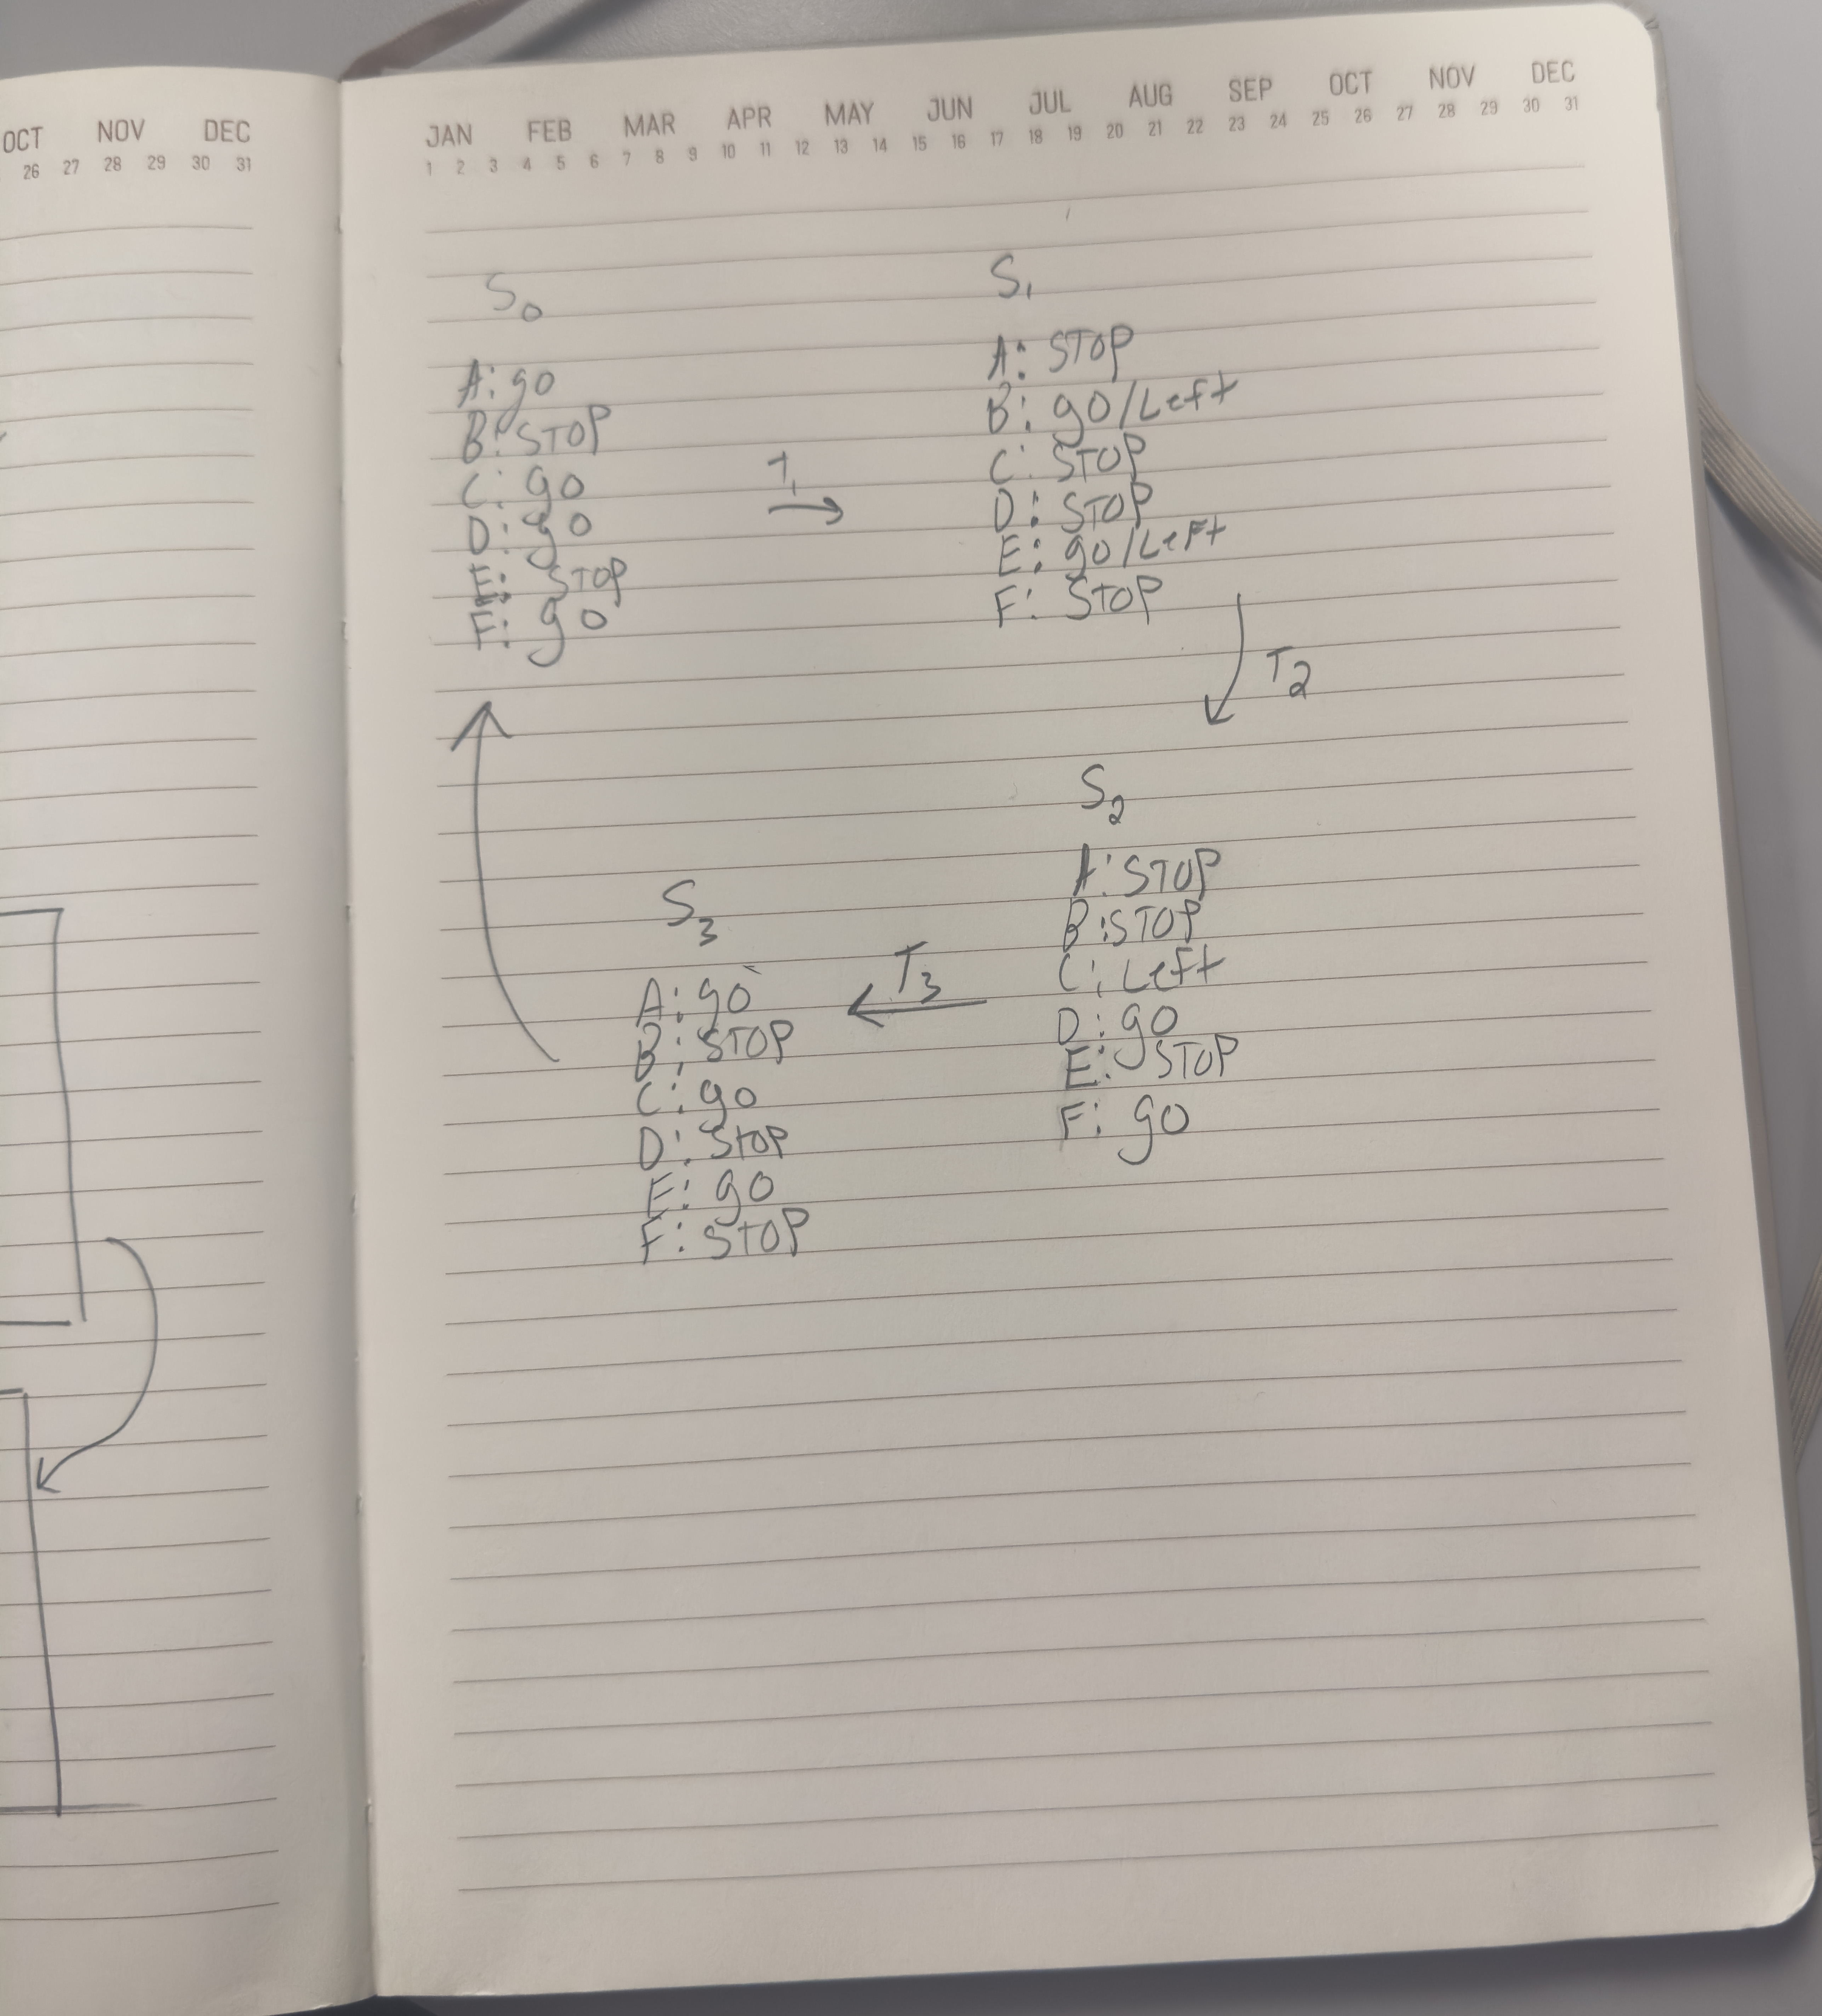 OCT NOV DEC
26 27 28 29 30 31
JAN FEB MAR APR MAY JUN JUL AUG SEP OCT NOV DEC
1 2 3 4 5 6 7 8 9 10 11 12 13 14 15 16 17 18 19 20 21 22 23 24 25 26 27 28 29 30 31
S0
A: go
B: STOP
C: go
D: go
E: STOP
F: go
T1
S1
A: STOP
B: go/Left
C: STOP
D: STOP
E: go/Left
F: STOP
T2
S2
A: STOP
B: STOP
C: Left
D: go
E: STOP
F: go
T3
S3
A: go
B: STOP
C: go
D: STOP
E: go
F: STOP